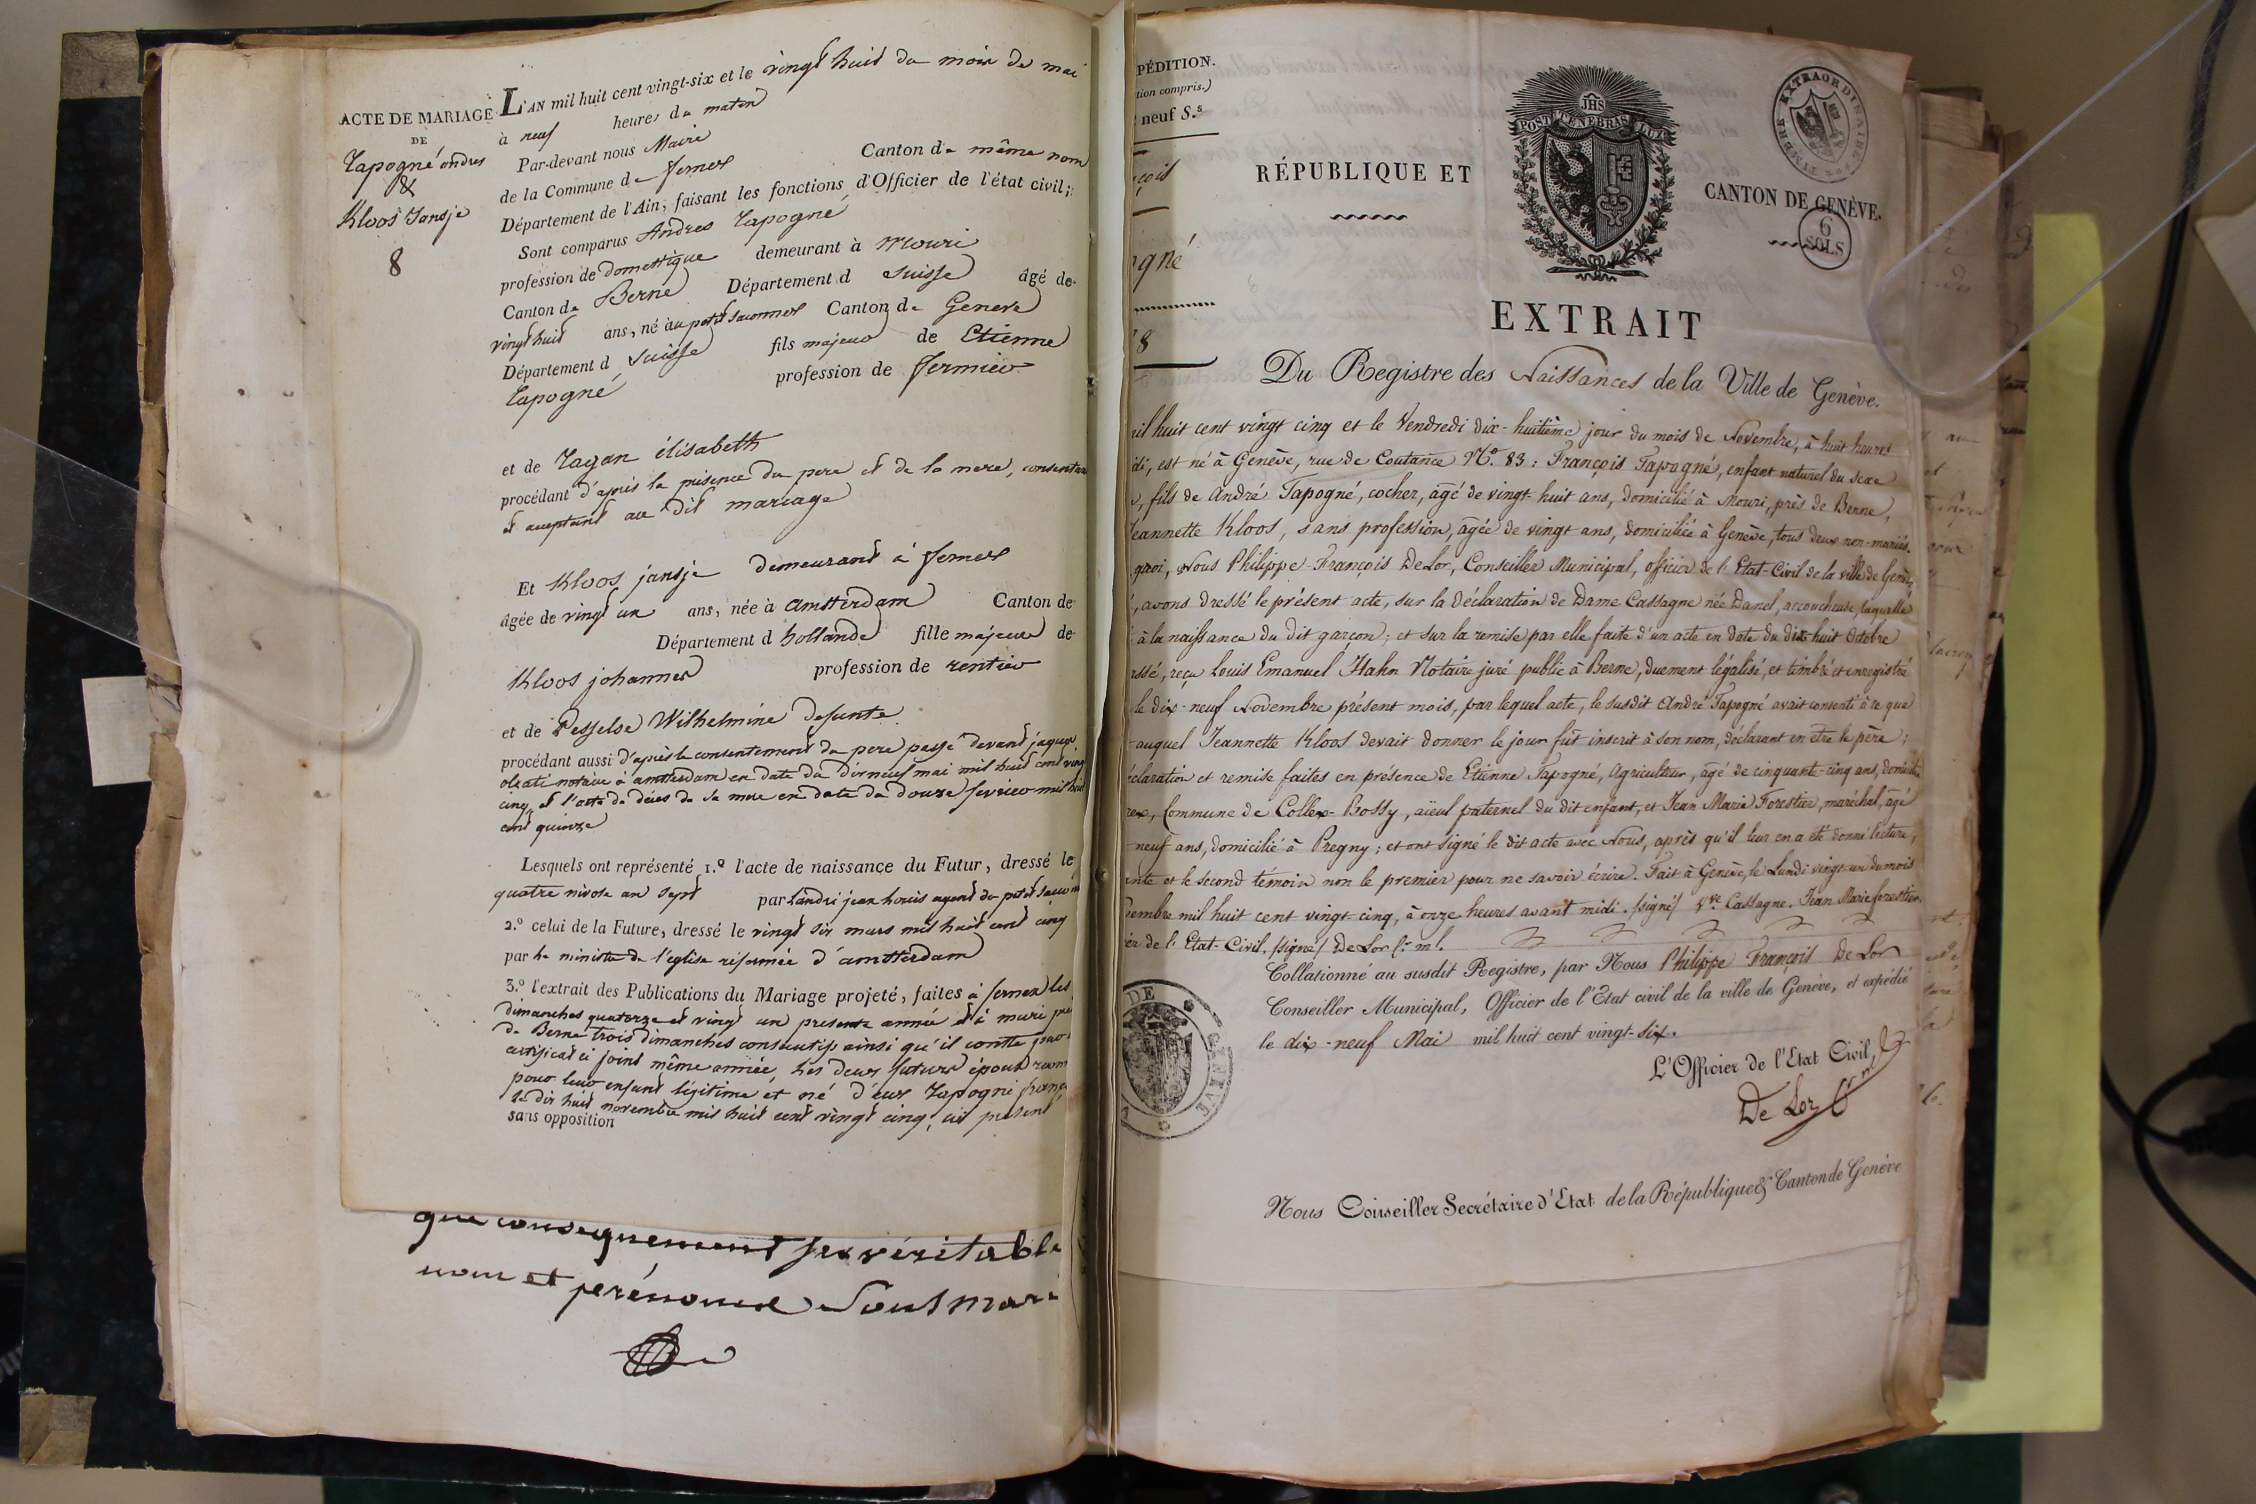 ACTE DE MARIAGE
DE
Tapogné andres
&
Kloos Jansje
8
L'AN mil huit cent vingt-six et le vingt huit du mois de mai
à neuf heures du matin
Par-devant nous Maire
de la Commune de fernex Canton de même nom
Département de l'Ain, faisant les fonctions d'Officier de l'état civil;
Sont comparus Andres Tapogné
profession de domestique demeurant à Mouri
Canton de Berne Département d Suisse âgé de
vingt huit ans, né au petit saconnex Canton de Geneve
Département d Suisse fils majeur de Etienne
Tapogné profession de fermier
et de Tagan élisabeth
procédant d'après la présence du pere et de la mere, consentan
et acceptant au dit mariage
Et Kloos jansje demeurant à fernex
âgée de vingt un ans, née à amsterdam Canton de
Département d hollande fille majeure de
Kloos johannes profession de rentier
et de Pesselse Wilhelmine defunte
procédant aussi d'après le consentement du pere passé devant jaques
notaire à amsterdam en date du dixneuf mai mil huit cent vingt
cinq, et l'acte de déces de sa mere en date du douze fevrier mil huit
cent quinze
Lesquels ont représenté 1.º l'acte de naissance du Futur, dressé le
quatre nivose an sept par Landri jean louis agent du petit saconn
2.º celui de la Future, dressé le vingt six mars mil huit cent cinq
par le ministre de l'église réformée d'amsterdam
3.º l'extrait des Publications du Mariage projeté, faites à fernex les
dimanches quatorze et vingt un presente année et à muri pre
de Berne trois dimanches consecutifs ainsi qu'il conste par
certificat ci joint même année, les deux futurs époux reconn
pour leur enfant légitime et né d'eux Tapogné franç
le dix huit novembre mil huit cent vingt cinq, ici présent
sans opposition
que consequemment ses véritable
nom et prénoms sont mari
PÉDITION.
tion compris.)
neuf S.s
çois
gné
8
RÉPUBLIQUE ET
JHS
POST TENEBRAS LUX
CANTON DE GENÈVE.
TIMBRE EXTRAORDINAIRE
6
SOLS
EXTRAIT
Du Registre des Naissances de la Ville de Genève.
il huit cent vingt cinq et le Vendredi dix-huitième jour du mois de Novembre, à huit heures
di, est né à Genève, rue de Coutance Nº. 83: François Tapogné, enfant naturel du sexe
, fils de André Tapogné, cocher, âgé de vingt-huit ans, domicilié à Mouri, près de Berne,
Jeannette Kloos, sans profession, âgée de vingt ans, domiciliée à Genève, tous deux non-mariés.
quoi, Nous Philippe-François DeLor, Conseiller Municipal, officier de l'Etat-Civil de la ville de Genève,
, avons dressé le présent acte, sur la déclaration de Dame Cassagne née Danel, accoucheuse, laquelle
à la naissance du dit garçon; et sur la remise par elle faite d'un acte en date du dix-huit Octobre
ssé, reçu Louis Emanuel Hahn Notaire juré public à Berne, duement légalisé, et timbré et enregistré
le dix-neuf Novembre présent mois, par lequel acte, le susdit André Tapogné avait consenti à ce que
auquel Jeannette Kloos devait donner le jour fût inscrit à son nom, déclarant en être le père;
éclaration et remise faites en présence de Etienne Tapogné, Agriculteur, âgé de cinquante-cinq ans, domicilié
rex, Commune de Collex-Bossy, aïeul paternel du dit enfant, et Jean Marie Forestier, maréchal, âgé
neuf ans, domicilié à Pregny; et ont signé le dit acte avec Nous, après qu'il leur en a été donné lecture,
nte et le second temoin non le premier pour ne savoir écrire. Fait à Genève, le Lundi vingt-un du mois
embre mil huit cent vingt-cinq, à onze heures avant midi. /signé/ Vve. Cassagne. Jean Marie forestier.
er de l'Etat-Civil, /signé/ DeLor C.r m.l.
Collationné au susdit Registre, par Nous Philippe François DeLor
Conseiller Municipal, Officier de l'Etat civil de la ville de Genève, et expédié
le dix-neuf Mai mil huit cent vingt-six.
L'Officier de l'Etat Civil,
De Lor
DE GENÈVE
Nous Conseiller Secrétaire d'Etat de la République & Canton de Genève